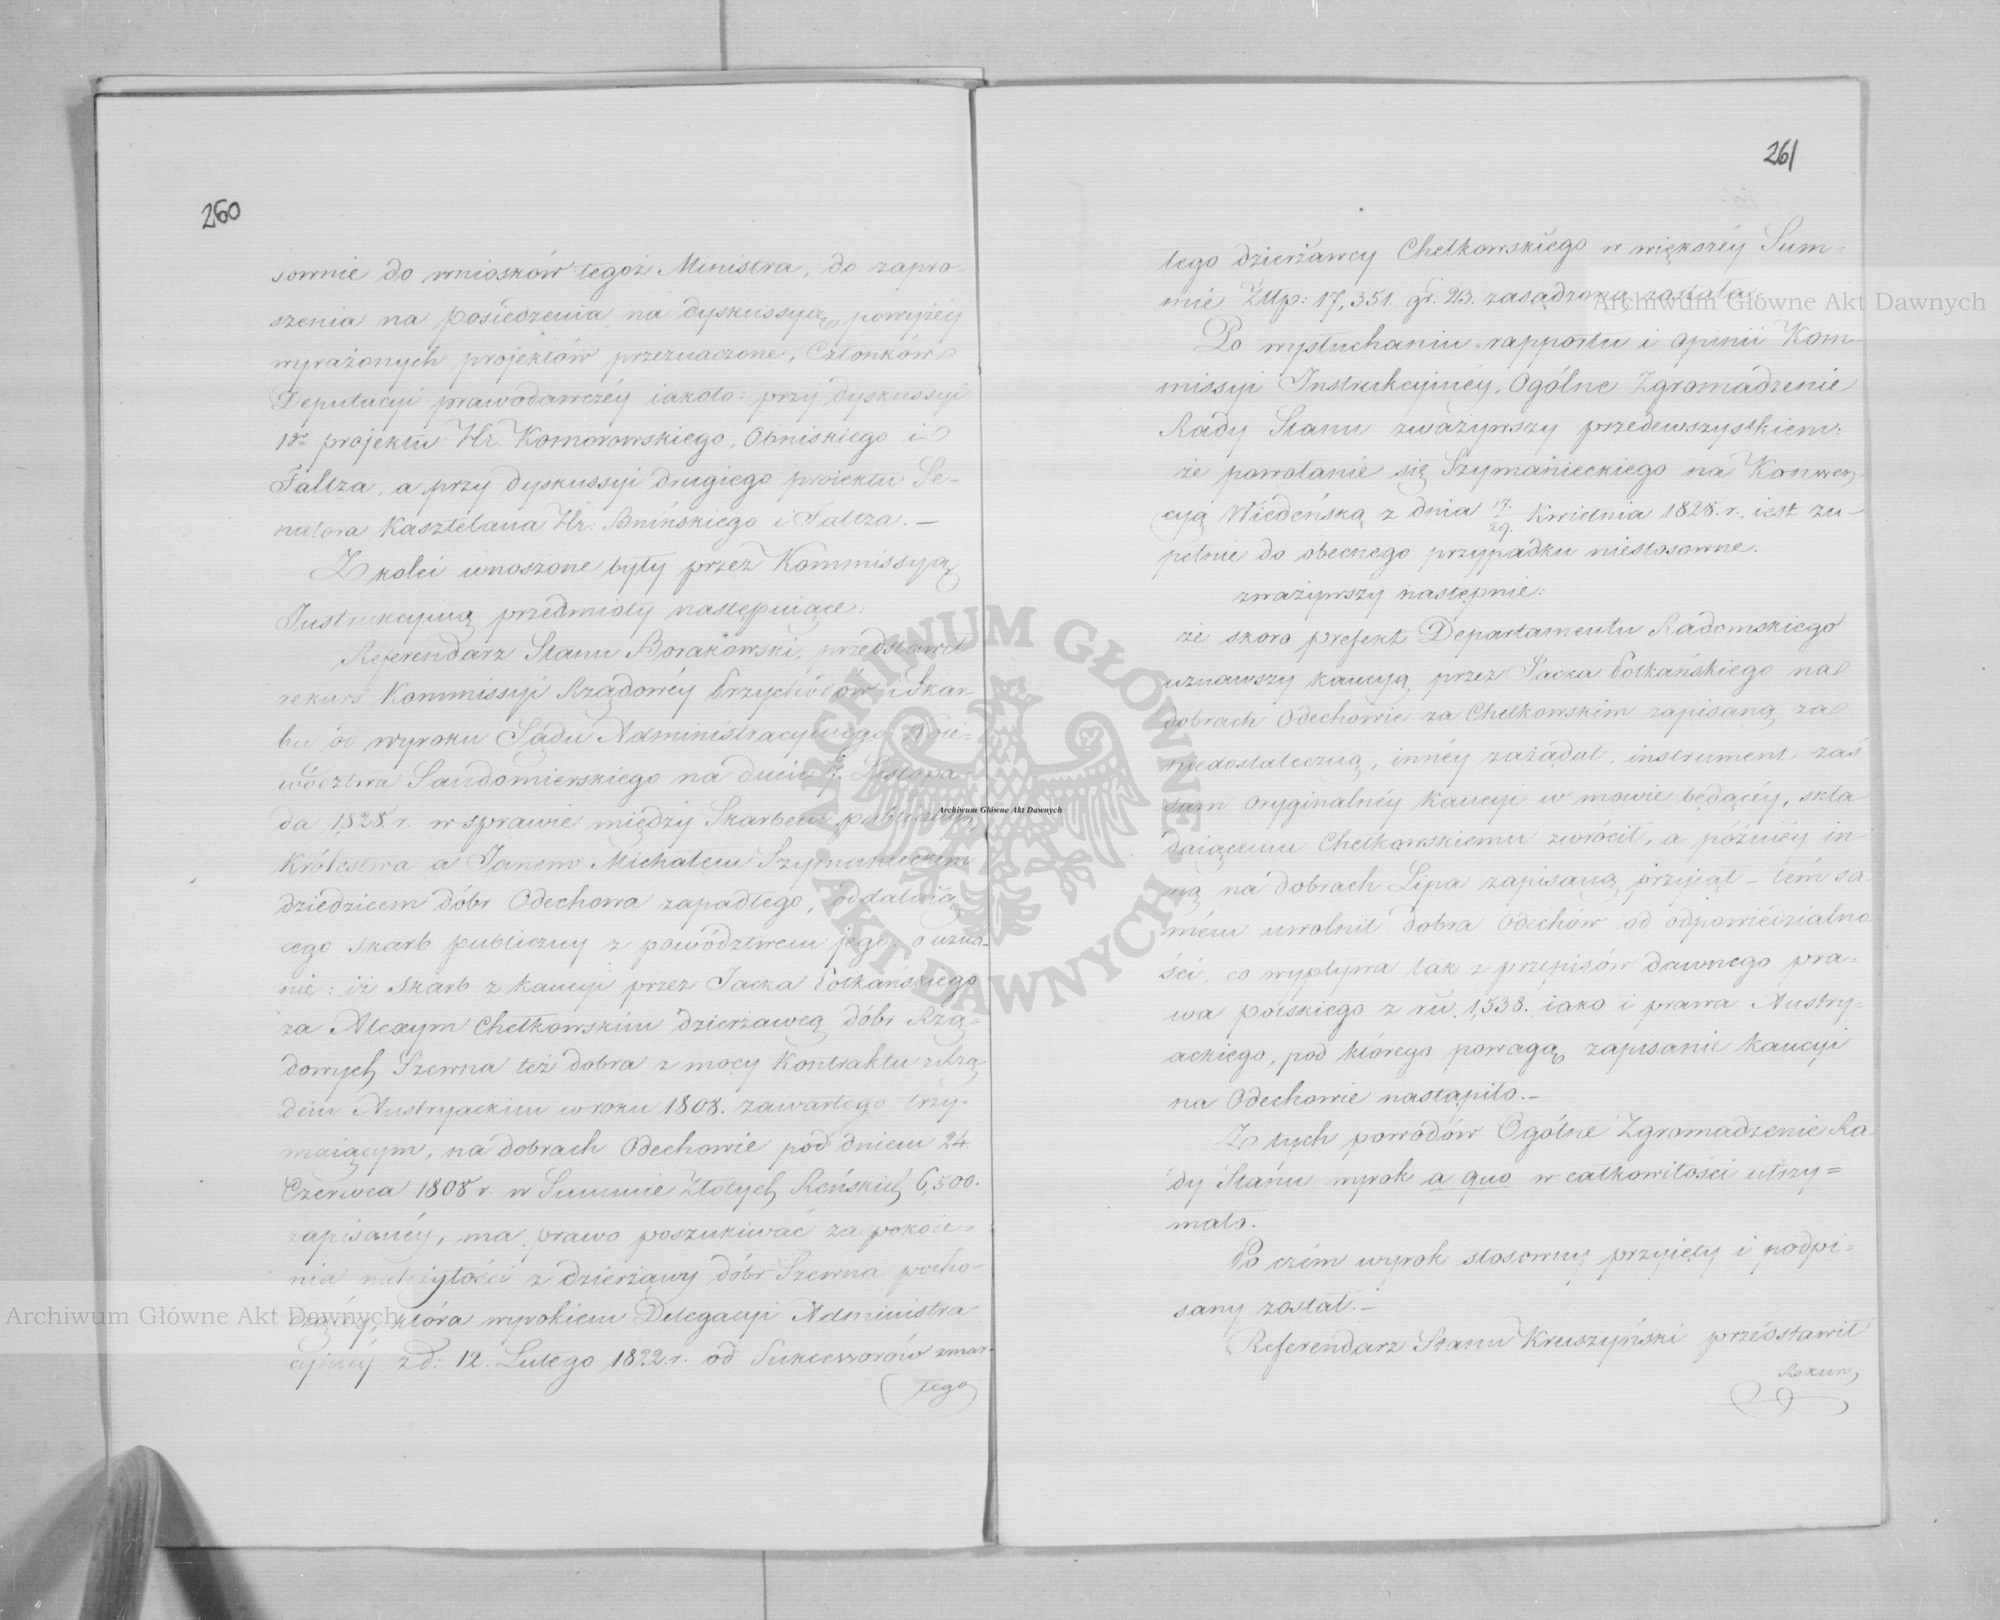 260
sownie do wniosków tegoż Ministra, do zapro-
szenia na posiedzenia na dyskussyą powyżéy
wyrażonych projektów przeznaczone, Członków
Deputacyi prawodawczéy iakoto: przy dyskussyi
1go projektu Hr. Komorowskiego, Obniskiego i
Faltza, a przy dyskussyi drugiego proiektu Se-
natora Kasztelana Hr: Bnińskiego i Faltza. —
Z kolei wnoszone były przez Kommissyą
Instrukcyiną przedmioty następuiące:
Referendarz Stanu Borakowski, przedstawił
rekurs Kommissyi Rządowéy Przychodów i Skar-
bu od wyroku Sądu Administracyinego Woie-
wództwa Sandomierskiego na dniu Listopa-
da 1828. r. w sprawie między Skarbem publicznym
Królestwa a Janem Michałem Szymanieckim
dziedzicem dóbr Odechowa zapadłego, oddalaią-
cego Skarb publiczny z powództwem jego, o uzna-
nie: iż Skarb z kaucyi przez Jacka Potkańskiego
za Alexym Chełkowskim dzierżawcą dóbr Rzą-
dowych Szewna też dobra z mocy Kontraktu z Rzą-
dem Austryackim w roku 1808. zawartego trzy-
maiącym, na dobrach Odechowie pod dniem 24.
Czerwca 1808 r. w Summie Złotych Reńskich 6,500.
zapisanéy, ma prawo poszukiwać zaspokoie-
nia należytości z dzierżawy dóbr Szewna pocho-
dzącéy, która wyrokiem Delegacyi Administra
cyinéy z d: 12. Lutego 1822. r. od Sukcessorów zmar-
tego
261
łego dzierżawcy Chełkowskiego w większéy Sum-
mie Złtp: 17,351. gr. 23. zasądzoną została.
Po wysłuchaniu rapportu i opinii Kom-
missyi Instrukcyinéy, Ogólne Zgromadzenie
Rady Stanu zważywszy przedewszystkiem:
że powołanie się Szymanieckiego na Konwen-
cyą Wiedeńską z dnia 17./29. Kwietnia 1828. r., iest zu-
pełnie do obecnego przypadku niestosowne.
zważywszy następnie:
że skoro prefekt Departamentu Radomskiego
uznawszy kaucyą przez Jacka Potkańskiego na
dobrach Odechowie za Chełkowskim zapisaną za
niedostateczną, innéy zażądał, instrument zaś
sam oryginalnéy kaucyi w mowie będącéy, skła-
daiącemu Chełkowskiemu zwrócił, a późniéy in-
ną na dobrach Lipa zapisaną przyiął – tém sa-
mém uwolnił dobra Odechów od odpowiedzialno-
ści, co wypływa tak z przepisów dawnego pra-
wa polskiego z ru. 1538. iako i prawa Austry-
ackiego, pod którego powagą zapisanie kaucyi
na Odechowie nastąpiło. –
Z tych powodów Ogólne Zgromadzenie Ra-
dy Stanu wyrok a quo w całkowitości utrzy-
mało.
Po czém wyrok stosowny przyięty i podpi-
sany został. –
Referendarz Stanu Kruszyński przedstawił
Rekurs
Archiwum Główne Akt Dawnych
Archiwum Główne Akt Dawnych
Archiwum Główne Akt Dawnych
ARCHIWUM GŁÓWNE · AKT DAWNYCH ·